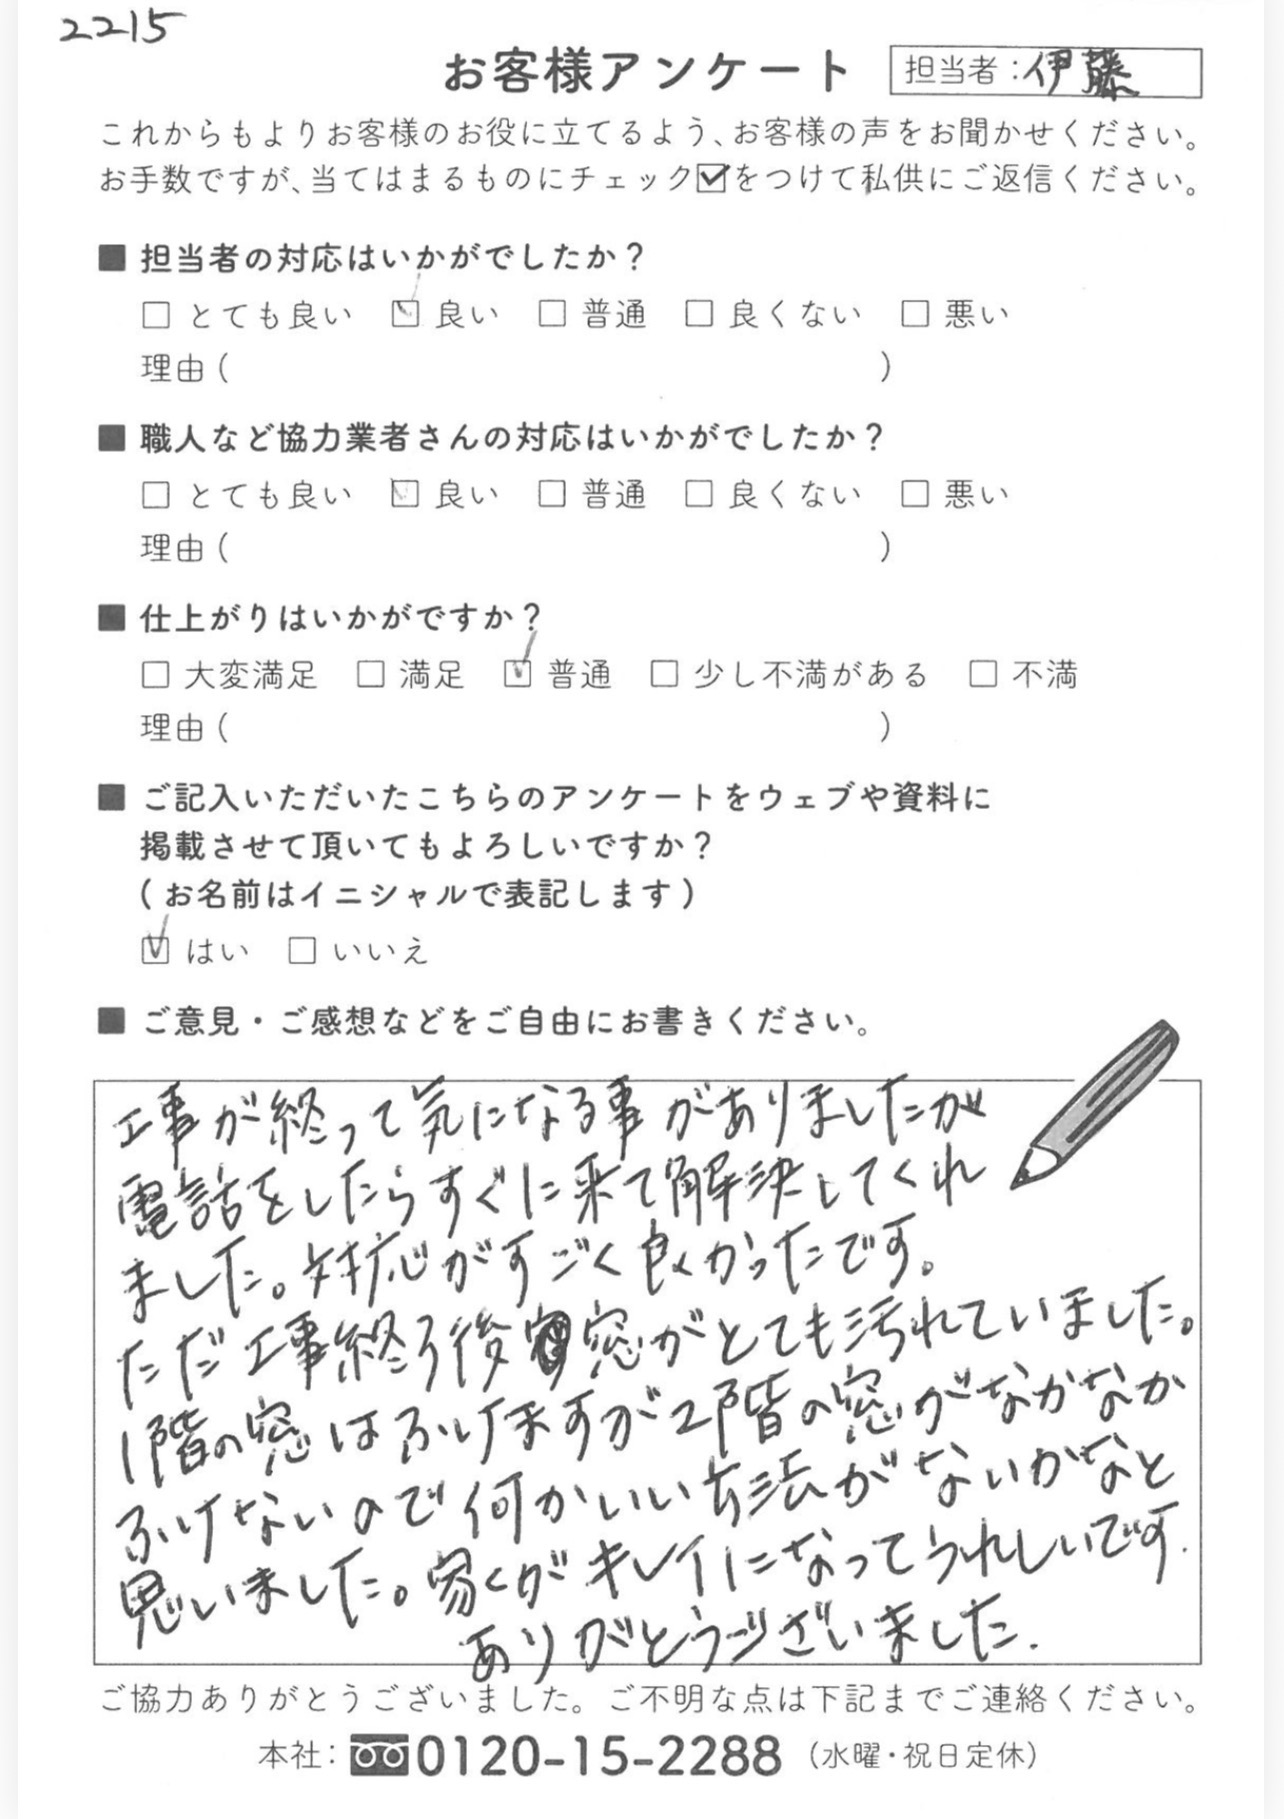 2215
お客様アンケート
担当者：伊藤
これからもよりお客様のお役に立てるよう、お客様の声をお聞かせください。
お手数ですが、当てはまるものにチェック☑をつけて私供にご返信ください。
■ 担当者の対応はいかがでしたか？
□ とても良い ☑ 良い □ 普通 □ 良くない □ 悪い
理由（ ）
■ 職人など協力業者さんの対応はいかがでしたか？
□ とても良い ☑ 良い □ 普通 □ 良くない □ 悪い
理由（ ）
■ 仕上がりはいかがですか？
□ 大変満足 □ 満足 ☑ 普通 □ 少し不満がある □ 不満
理由（ ）
■ ご記入いただいたこちらのアンケートをウェブや資料に
掲載させて頂いてもよろしいですか？
（お名前はイニシャルで表記します）
☑ はい □ いいえ
■ ご意見・ご感想などをご自由にお書きください。
工事が終って気になる事がありましたが
電話をしたらすぐに来て解決してくれ
ました。対応がすごく良かったです。
ただ工事終う後 窓がとても汚れていました。
1階の窓はふけますが2階の窓がなかなか
ふけないので何かいい方法がないかなと
思いました。 がキレイになってうれしいです.
ありがとうございました.
ご協力ありがとうございました。ご不明な点は下記までご連絡ください。
本社：0120-15-2288（水曜・祝日定休）